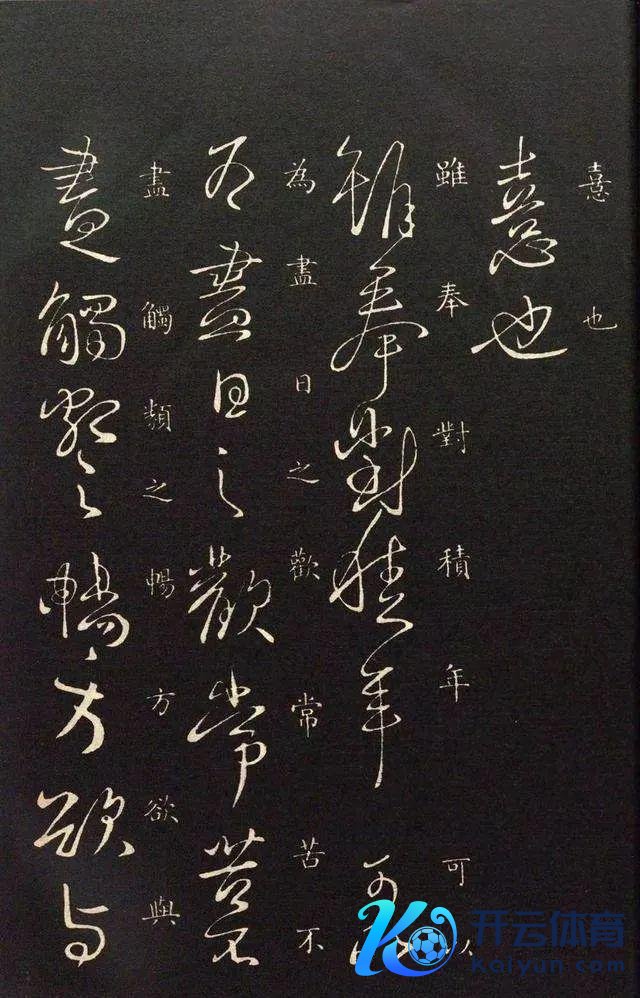 憙也
憙也
雖奉對積年可以
雖奉對積年可以
為盡日之歡常苦不
為盡日之歡常苦不
盡觸類之暢方欲與
盡觸類之暢方欲與
开云体育
Kaiyun.com